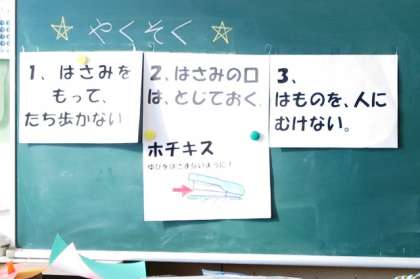 やくそく
1、はさみを
もって、
たち歩かない
2、はさみの口
は、とじておく。
ホチキス
ゆびをはさまないように!
3、
はものを、人に
むけない。